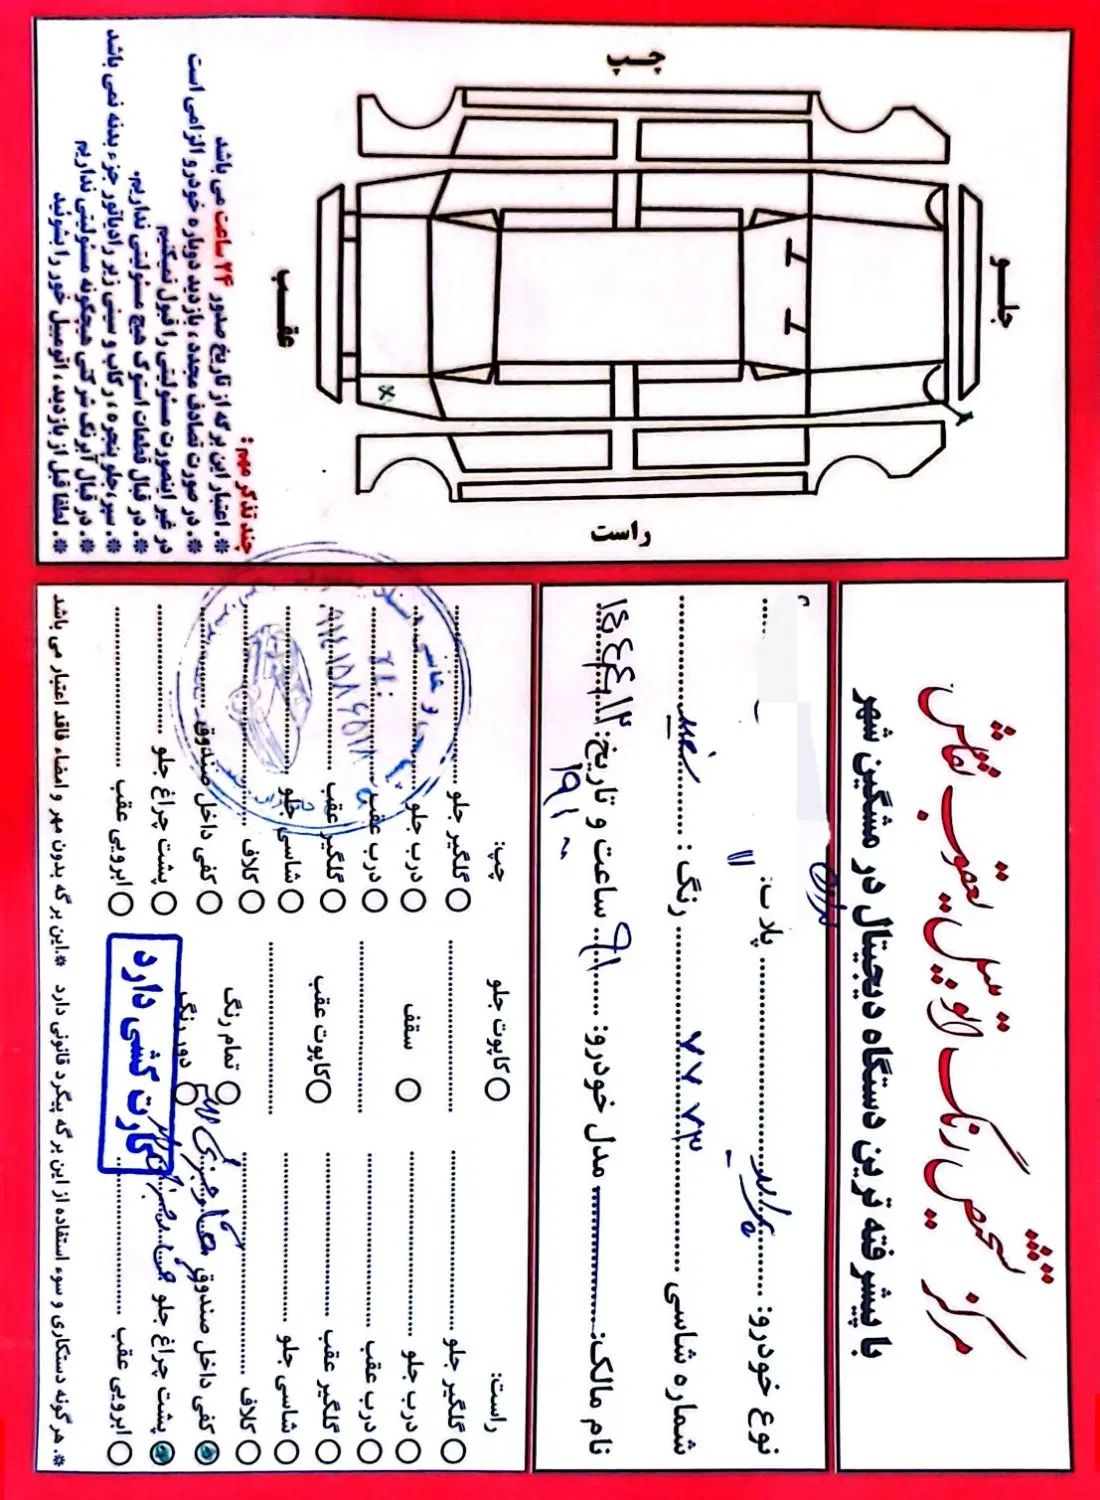 مرکز تشخیص رنگ اتومبیل یعقوب نقاش
با پیشرفته ترین دستگاه دیجیتال در مشگین شهر
نوع خودرو: پراید پلاک: ۱۱
شماره شاسی ۷۷۷۳ رنگ: سفید
نام مالک: مدل خودرو: ۹۱ ساعت و تاریخ: ۱۴۰۴/۴/۱۲
۱۹/۰۰
راست: کاپوت جلو چپ:
گلگیر جلو گلگیر جلو
درب جلو سقف درب جلو
درب عقب درب عقب
گلگیر عقب کاپوت عقب گلگیر عقب
شاسی جلو شاسی جلو
کلاف تمام رنگ کلاف
کفی داخل صندوق دور رنگ کفی داخل صندوق
پشت چراغ جلو پشت چراغ جلو
ابرویی عقب ابرویی عقب
کارت کشی دارد
*. هرگونه دستکاری و سوء استفاده از این برگه پیگرد قانونی دارد *.این برگه بدون مهر و امضاء فاقد اعتبار می باشد
چپ
جلو
عقب
راست
چند تذکر مهم:
*. اعتبار این برگه از تاریخ صدور ۲۴ ساعت می باشد
*. در صورت تصادف مجدد، بازدید دوباره خودرو الزامی است
در غیر اینصورت مسئولیتی را قبول نمیکنیم
*. در قبال قطعات استوک هیچ مسئولیتی نداریم.
*. سپر،جلو پنجره، رکاب و سینی زیر رادیاتور جزء بدنه نمی باشد
*. در قبال آبرنگ شرکتی هیچگونه مسئولیتی نداریم
*. لطفا قبل از بازدید، اتومبیل خور را بشوئید